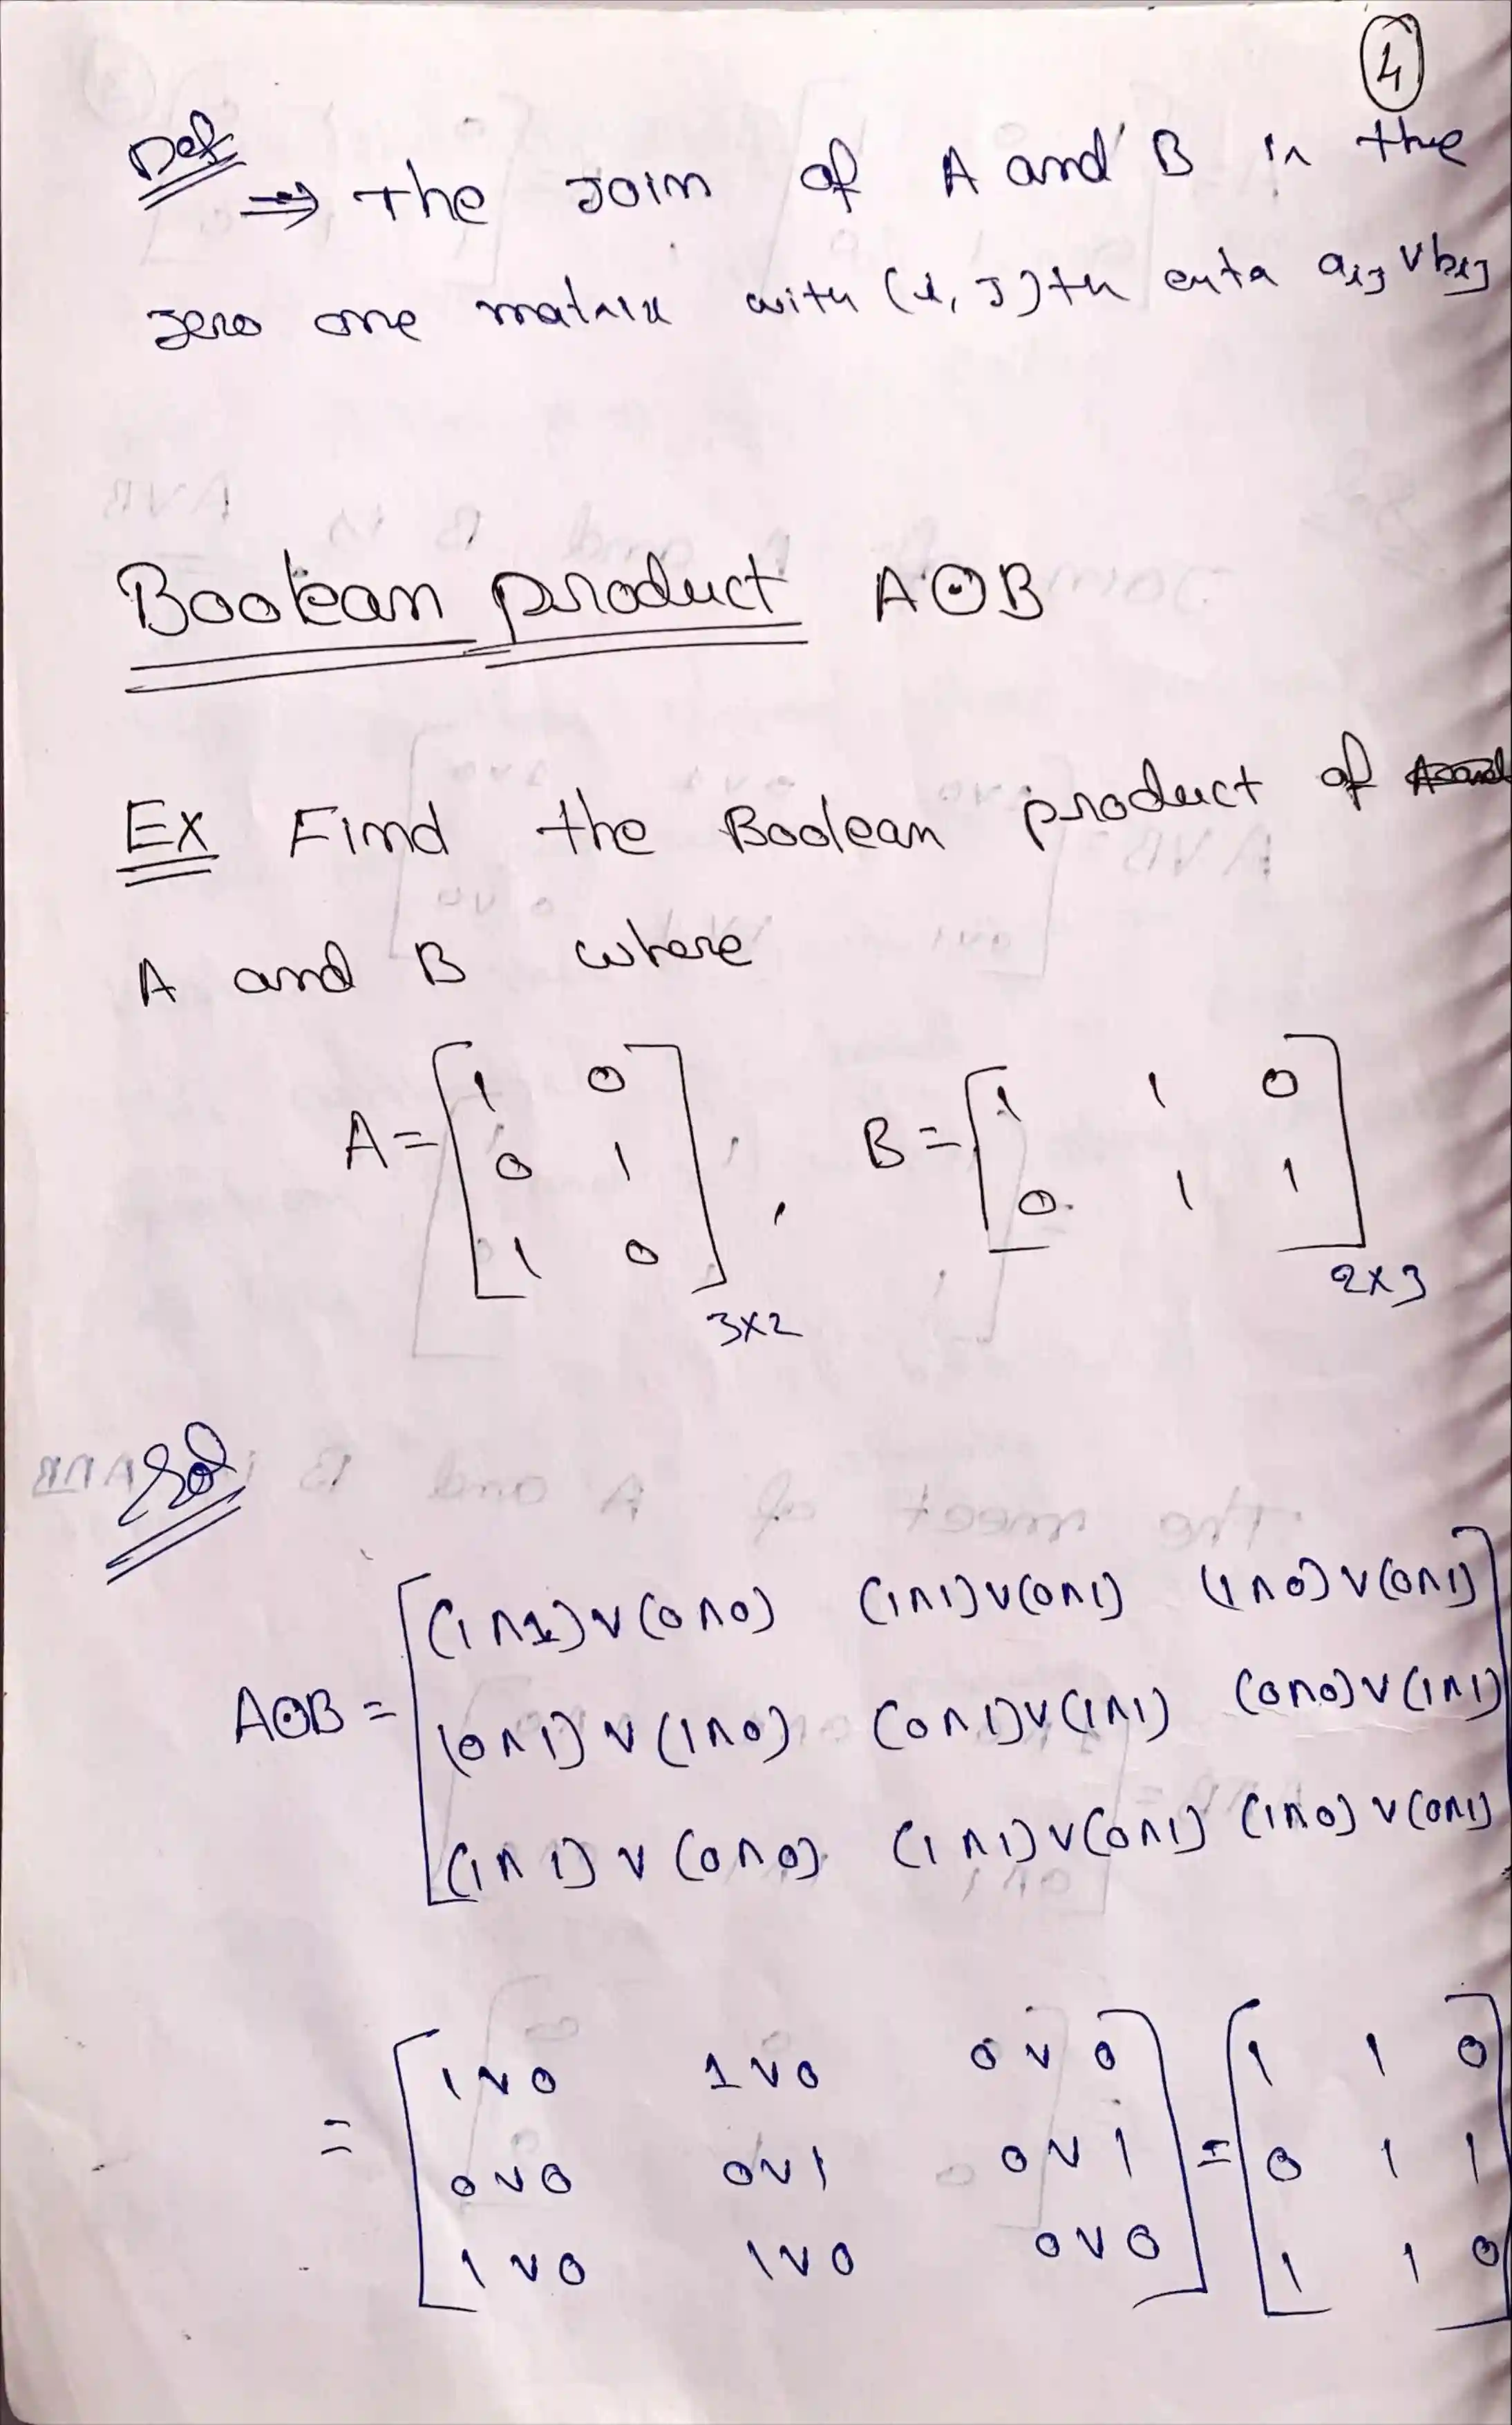 4
Def ⇒ The Join of A and B is the
zero one matrix with (i, j)th enta aij v bij
Boolean product A⊙B
Ex Find the Boolean product of
A and B where
A = [1 0
0 1
1 0] 3×2 , B = [1 1 0
0 1 1] 2×3
Sol
A⊙B = [(1∧1)∨(0∧0) (1∧1)∨(0∧1) (1∧0)∨(0∧1)
(0∧1)∨(1∧0) (0∧1)∨(1∧1) (0∧0)∨(1∧1)
(1∧1)∨(0∧0) (1∧1)∨(0∧1) (1∧0)∨(0∧1)]
= [1∨0 1∨0 0∨0
0∨0 0∨1 0∨1
1∨0 1∨0 0∨0] = [1 1 0
0 1 1
1 1 0]